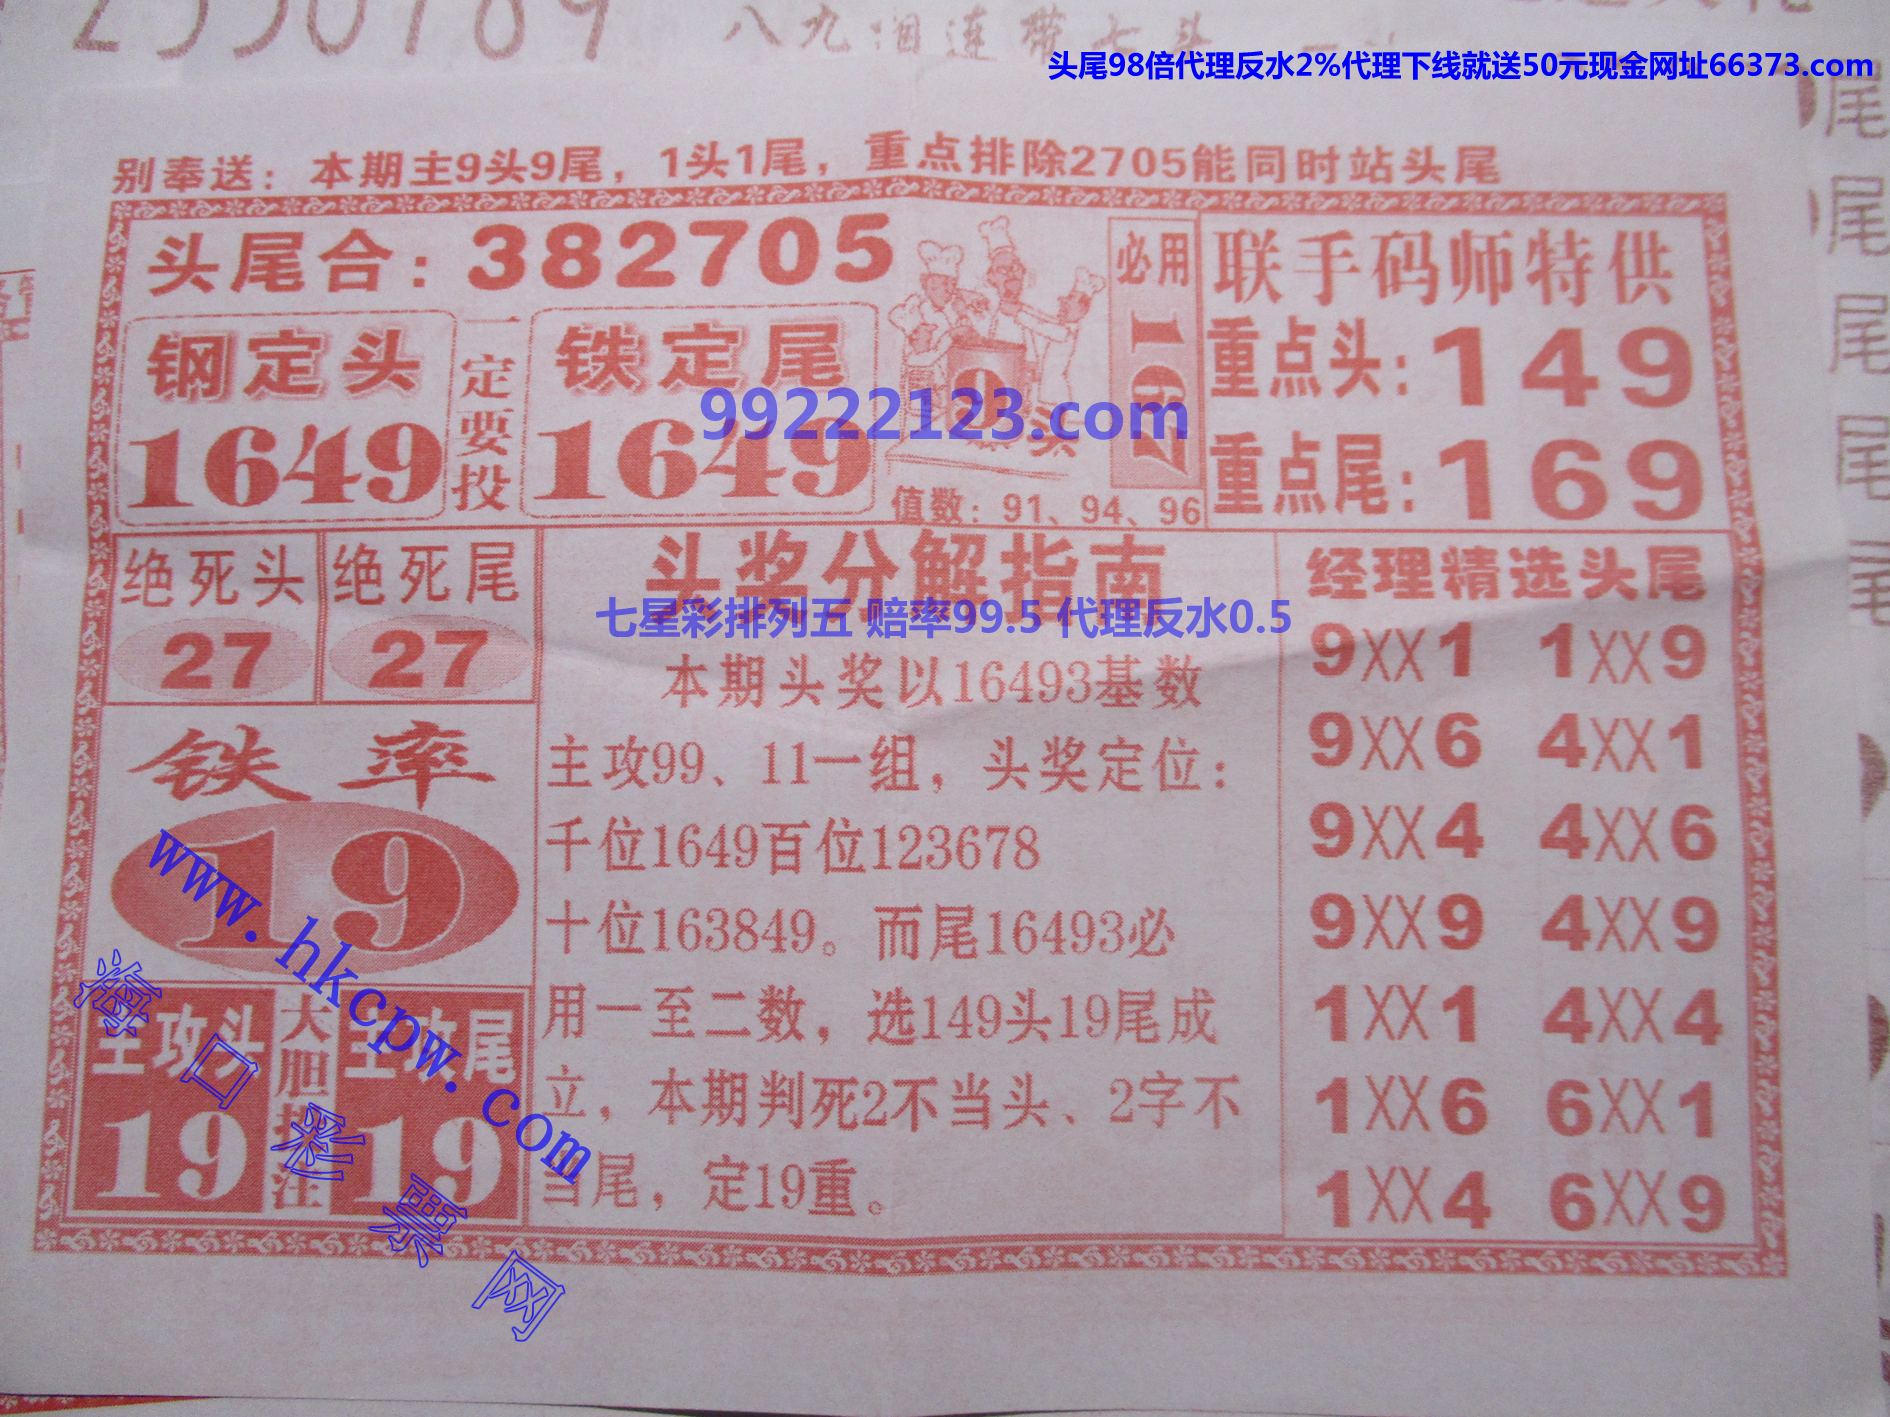 八九
连带七头
头尾98倍代理反水2%代理下线就送50元现金网址66373.com
别奉送：本期主9头9尾，1头1尾，重点排除2705能同时站头尾
头尾合：382705
钢定头
1649
一定要投
铁定尾
1649
9头
值数：91、94、96
必用
167
联手码师特供
重点头：149
重点尾：169
99222123.com
绝死头
27
绝死尾
27
铁率
19
主攻头
19
大胆投注
主攻尾
19
头奖分解指南
七星彩排列五 赔率99.5 代理反水0.5
本期头奖以16493基数
主攻99、11一组，头奖定位：
千位1649百位123678
十位163849。而尾16493必
用一至二数，选149头19尾成
立，本期判死2不当头、2字不
当尾，定19重。
经理精选头尾
9XX1 1XX9
9XX6 4XX1
9XX4 4XX6
9XX9 4XX9
1XX1 4XX4
1XX6 6XX1
1XX4 6XX9
www.hkcpw.com
海口彩票网
尾
尾
尾
尾
尾